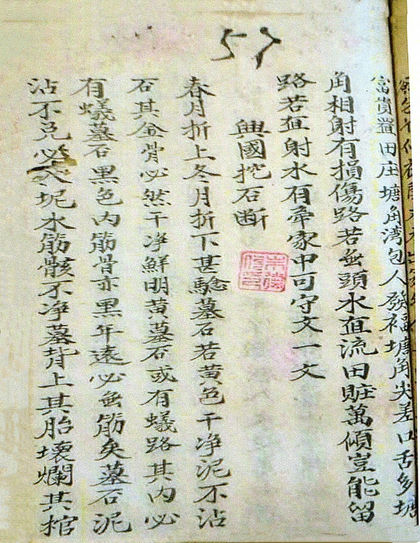 富貴置田庄塘角湾包人發福塘角尖差口舌多塘
角相射有損傷路若無頭水直流田賍萬傾豈能留
路若直射水有牵家中可守文一文
興國挖石斷
春月折上冬月折下甚騐墓石若黄色干净泥不沾
石其金骨必然干净鮮明黄墓石或有蟻路其内必
有蟻墓石黑色内筋骨亦黑年遠必無筋矣墓石泥
沾不兑必入坭水筋骸不净墓背上其胎壊爛其棺